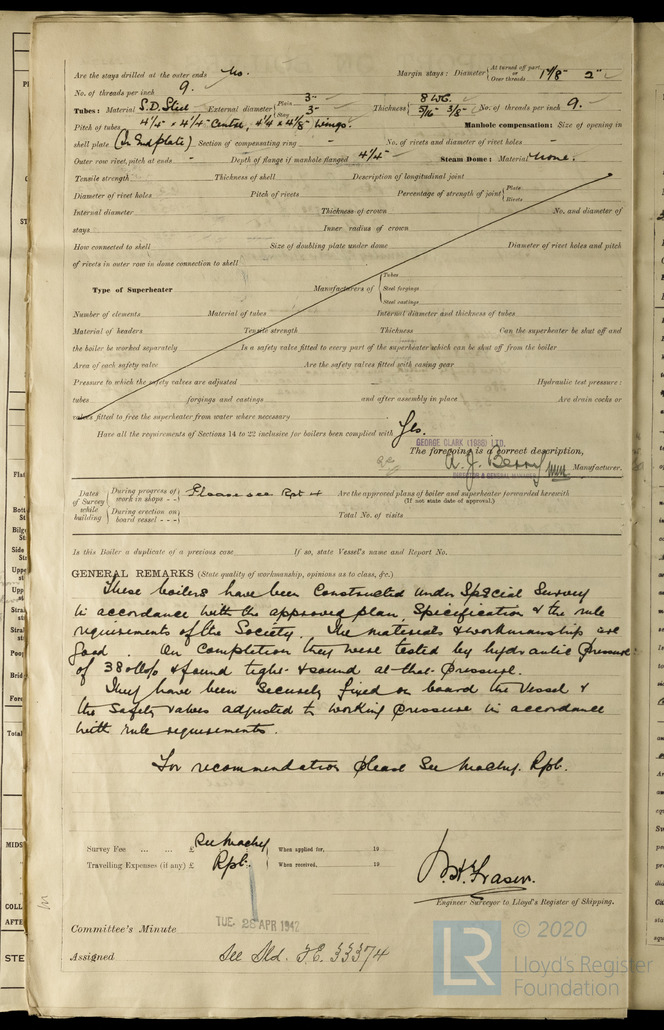 Are the stays drilled at the outer ends No. Margin stays: Diameter { At turned off part, or Over threads 1 7/8" 2"
No. of threads per inch 9.
Tubes: Material S.D. Steel External diameter { Plain 3" Stay 3" Thickness { 8 WG. 5/16" 3/8" No. of threads per inch 9.
Pitch of tubes 4 1/4" x 4 1/4" Centre, 4 1/4 x 4 1/8" Wings. Manhole compensation: Size of opening in
shell plate (In End plate) Section of compensating ring - No. of rivets and diameter of rivet holes -
Outer row rivet pitch at ends - Depth of flange if manhole flanged 4 1/4" Steam Dome: Material None.
Tensile strength Thickness of shell Description of longitudinal joint
Diameter of rivet holes Pitch of rivets Percentage of strength of joint { Plate Rivets
Internal diameter Thickness of crown No. and diameter of
stays Inner radius of crown
How connected to shell Size of doubling plate under dome Diameter of rivet holes and pitch
of rivets in outer row in dome connection to shell
Type of Superheater Manufacturers of { Tubes Steel forgings Steel castings
Number of elements Material of tubes Internal diameter and thickness of tubes
Material of headers Tensile strength Thickness Can the superheater be shut off and
the boiler be worked separately Is a safety valve fitted to every part of the superheater which can be shut off from the boiler
Area of each safety valve Are the safety valves fitted with easing gear
Pressure to which the safety valves are adjusted Hydraulic test pressure:
tubes forgings and castings and after assembly in place Are drain cocks or
valves fitted to free the superheater from water where necessary
Have all the requirements of Sections 14 to 22 inclusive for boilers been complied with Yes.
GEORGE CLARK (1938) LTD.
The foregoing is a correct description,
A. J. Berry Manufacturer.
DIRECTOR & GENERAL MANAGER
Dates of Survey while building { During progress of work in shops - - } Please see Rpt 4 Are the approved plans of boiler and superheater forwarded herewith
(If not state date of approval.)
{ During erection on board vessel - - - } Total No. of visits
Is this Boiler a duplicate of a previous case If so, state Vessel's name and Report No.
GENERAL REMARKS (State quality of workmanship, opinions as to class, &c.)
These boilers have been constructed under Special Survey
in accordance with the approved plan, Specification & the rule
requirements of the Society. The materials & workmanship are
good. On completion they were tested by hydraulic pressure
of 380 lb/□" & found tight & sound at that pressure.
They have been securely fixed on board the Vessel &
the Safety Valves adjusted to working pressure in accordance
with rule requirements.
For recommendation please See Machy. Rpt.
Survey Fee ... ... £ See Machy When applied for, 19
Travelling Expenses (if any) £ Rpt. When received, 19
Fraser.
Engineer Surveyor to Lloyd's Register of Shipping.
Committee's Minute TUE. 28 APR 1942
Assigned See Sld. F.E. 33374
LR © 2020
Lloyd's Register
Foundation